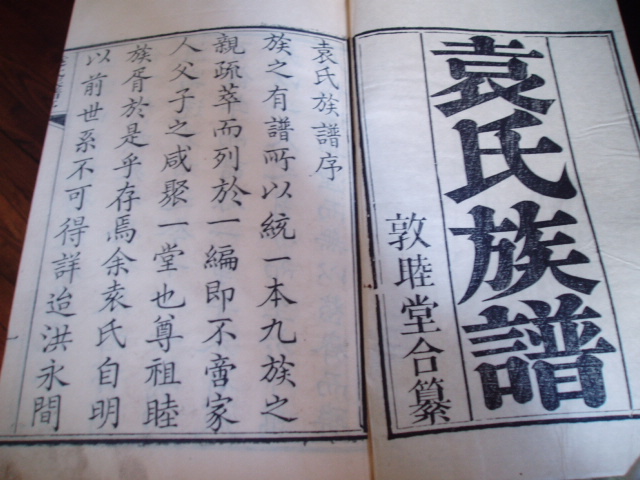 袁氏族譜
敦睦堂合纂
袁氏族譜序
族之有譜所以統一本九族之
親疏萃而列於一編即不啻家
人父子之咸聚一堂也尊祖睦
族胥於是乎存焉余袁氏自明
以前世系不可得詳迨洪永間